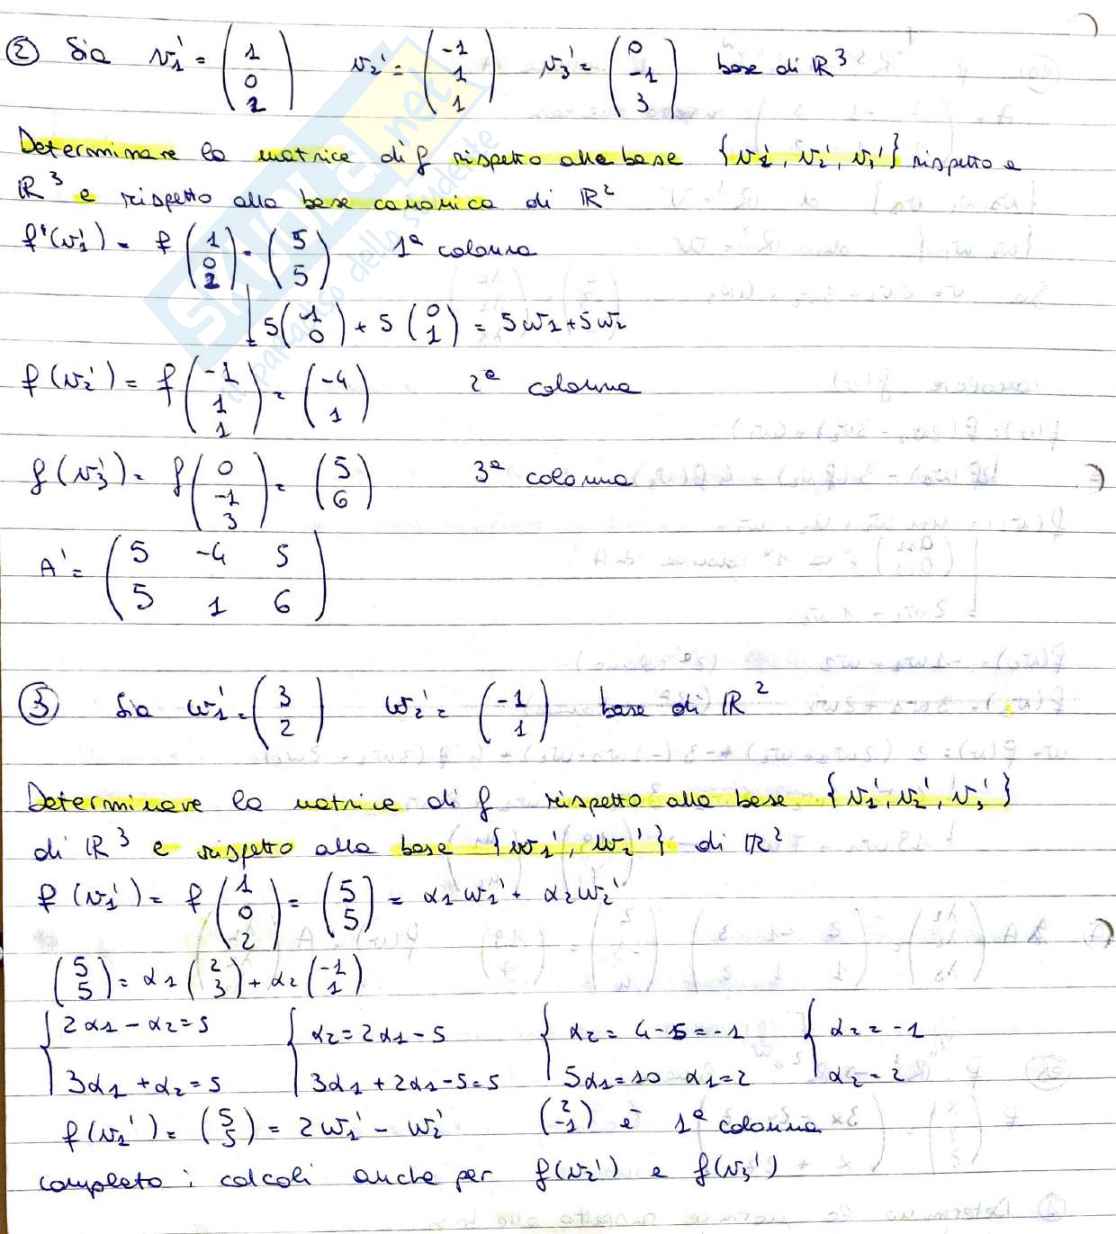 ② Sia v₁' = (1 0 2) v₂' = (-1 1 1) v₃' = (0 -1 3) base di ℝ³
Determinare la matrice di f rispetto alla base {v₁', v₂', v₃'} rispetto a
ℝ³ e rispetto alla base canonica di ℝ²
f'(v₁') = f(1 0 2) = (5 5) 1ª colonna
= 5(1 0) + 5(0 1) = 5w₁+5w₂
f(v₂') = f(-1 1 1) = (-4 1) 2ª colonna
f(v₃') = f(0 -1 3) = (5 6) 3ª colonna
A' = (5 -4 5
5 1 6)
③ Sia w₁' = (3 2) w₂' = (-1 1) base di ℝ²
Determinare la matrice di f rispetto alla base {v₁', v₂', v₃'}
di ℝ³ e rispetto alla base {w₁', w₂'} di ℝ²
f(v₁') = f(1 0 2) = (5 5) = α₁w₁' + α₂w₂'
(5 5) = α₁(2 3) + α₂(-1 1)
{2α₁ - α₂ = 5 {α₂ = 2α₁ - 5 {α₂ = 4-5 = -1 {α₂ = -1
3α₁ + α₂ = 5 3α₁ + 2α₁ - 5 = 5 5α₁ = 10 α₁ = 2 α₂ = 2
f(v₁') = (5 5) = 2w₁' - w₂' (2 -1) è 1ª colonna
completo i calcoli anche per f(v₂') e f(v₃')
SKUOLA.net
il paradiso dello studente